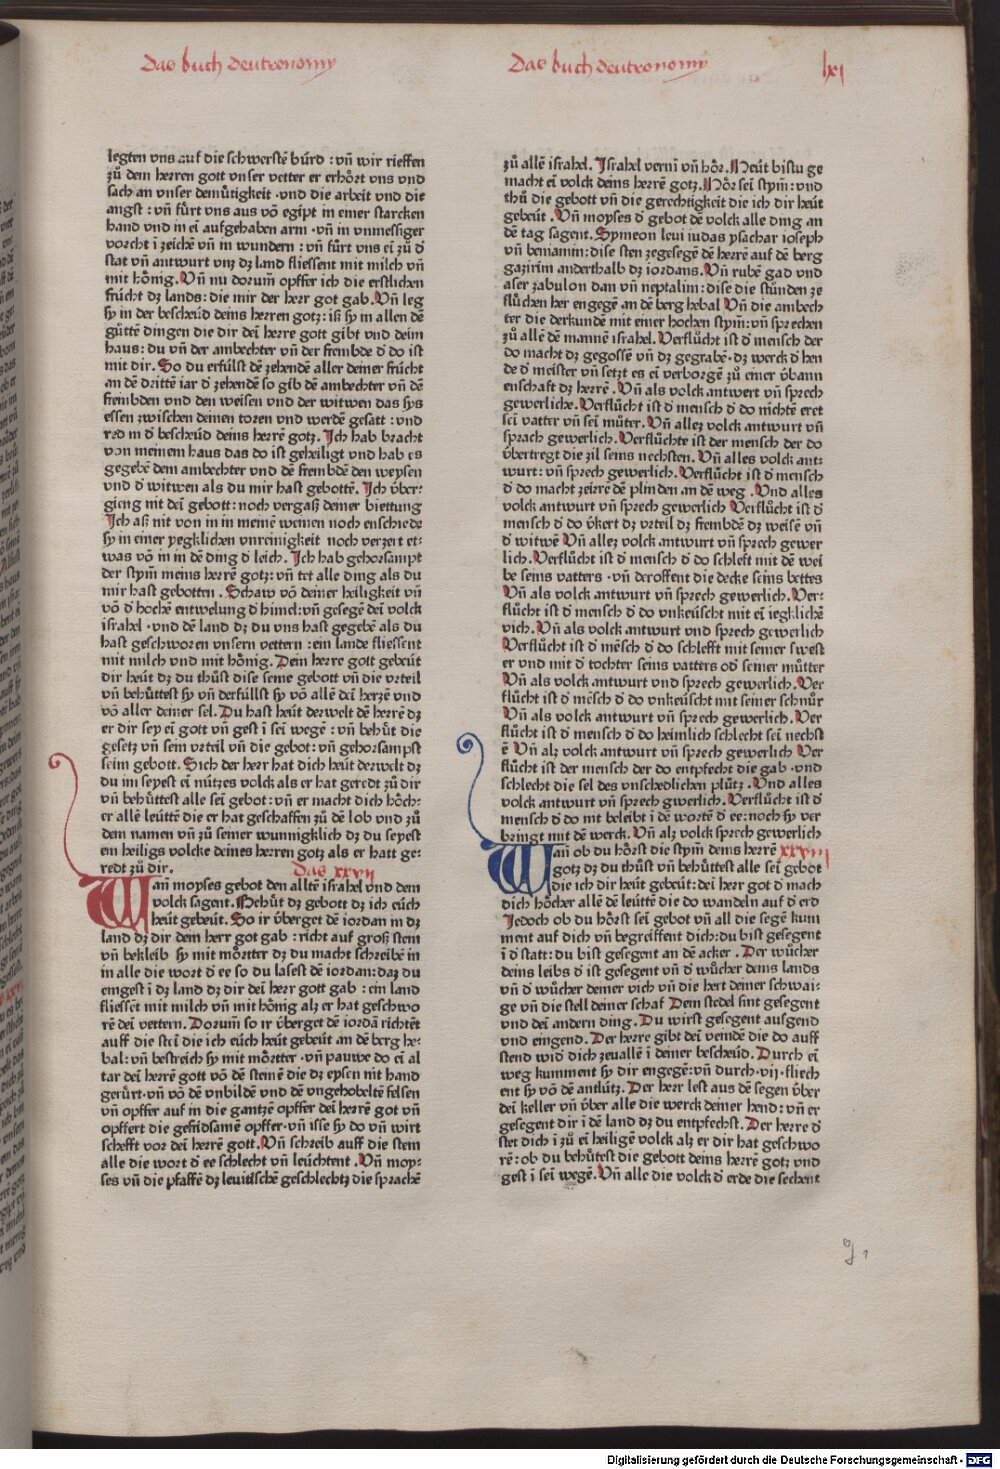 Das buch deutronomy
Das buch deutronomy
lxj
legten vns auf die schwerstē bürd : vñ wir rieffen
zů dem herren gott vnser vetter er erhôrt vns vnd
sach an vnser demůtigkeit · vnd die arbeit vnd die
angst : vñ fůrt vns aus võ egipt in einer starcken
hand vnd in eī aufgehaben arm · vñ in vnmessiger
vorcht ī zeichē vñ in wundern : vñ fůrt vns eī zů d̕
stat vñ antwurt vnz dz land fliessent mit milch vñ
mit hônig. Vñ nu dorum̄ opffer ich die erstlichen
frücht dz lands : die mir der herr got gab. Vñ leg
sy in der bescheüd deins herren gotz : iß sy in allen dē
gůttē dingen die dir deī herre gott gibt vnd deim
haus : du vñ der ambechter vñ der frembde d̕ do ist
mit dir. So du erfülst dē zehendē aller deiner frücht
an dē drittē iar d̕ zehendē so gib dē ambechter vñ dē
frembden vnd den weisen vnd der witwen das sys
essen zwischen deinen toren vnd werdē gesatt : vnd
red in d̕ bescheüd deins herrē gotz. Ich hab bracht
von meinem haus das do ist geheiligt vnd hab es
gegebē dem ambechter vnd dē frembdē den weysen
vnd d̕ witwen als du mir hast gebottē. Ich v̈ber-
gieng nit deī gebott : noch vergaß deiner biettung
Ich aß nit von in in meinē weinen noch enschiede
sy in einer yegklichen vnreinigkeit noch verzert et-
was võ in in dē ding d̕ leich. Ich hab gehorsampt
der stym̄ meins herrē gotz : vñ tet alle ding als du
mir hast gebotten. Schaw võ deiner heiligkeit vñ
võ d̕ hochē entwelung d̕ himel : vñ gesegē deī volck
israhel · vnd dē land dz du vns hast gegebē als du
hast geschworen vnsern vettern : ein lande fliessent
mit milch vnd mit hônig. Dein herre gott gebeüt
dir heüt dz du thůst dise seine gebott vñ die vrteil
vñ behůttest sy vñ derfüllst sy võ allē deī herzē vnd
võ aller deiner sel. Du hast heüt derwelt dē herrē dz
er dir sey eī gott vñ gest ī seī wegē : vñ behůt die
gesetz vñ sein vrteil vñ die gebot : vñ gehorsampst
seim gebott. Sich der herr hat dich heüt derwelt dz
du im seyest eī nützes volck als er hat geredt zů dir
vñ behůttest alle seī gebot : vñ er macht dich hôch-
er allē leüttē die er hat geschaffen zů dē lob vnd zů
dem namen vñ zů seiner wunnigklich dz du seyest
ein heiligs volcke deines herren gotz als er hatt ge-
redt zů dir.
Das xxvij
Wañ moyses gebot den alltē israhel vnd dem
volck sagent. Behůt dz gebott dz ich eüch
heüt gebeüt. So ir v̈berget dē iordan in dz
land dz dir dem herr got gab : richt auf groß stein
vñ bekleib sy mit môrtter dz du macht schreibē in
in alle die wort d̕ ee so du lasest dē iordan : daz du
eingest ī dz land dz dir deī herr gott gab : ein land
fliessēt mit milch vñ mit hônig alz er hat geschwo
rē deī vettern. Dorum̄ so ir v̈berget dē iordā richtēt
auff die steī die ich eüch heüt gebeüt an dē berg he-
bal : vñ bestreich sy mit môrtter · vñ pauwe do eī al
tar deī herrē gott võ dē steinē die dz eysen nit hand
gerůrt · vñ võ dē vnbildē vnd dē vngehobeltē felsen
vñ opffer auf in die gantzē opffer deī herrē got vñ
opffert die gefridsamē opffer · vñ isse sy do vñ wirt
schefft vor deī herrē gott. Vñ schreib auff die stein
alle die wort d̕ ee schlecht vñ leüchtent. Vñ moy-
ses vñ die pfaffē dz leuitischē geschlechtz die sprachē
zů allē israhel. Israhel vernī vñ hôr. Heüt bistu ge
macht eī volck deins herrē gotz. Hôr seī stym̄ : vnd
thů die gebott vñ die gerechtigkeit die ich dir heüt
gebeüt. Vñ moyses d̕ gebot dē volck alle ding an
dē tag sagent. Symeon leui iudas ysachar ioseph
vñ beniamin : dise sten zegesegē dē herrē auf dē berg
gazirim anderthalb dz iordans. Vñ rubē gad vnd
aser zabulon dan vñ neptalim : dise die stůnden ze
flůchen her engegē an dē berg hebal Vñ die ambech
ter die derkundē mit einer hochen stym̄ : vñ sprechen
zů allē dē mannē israhel. Verflücht ist d̕ mensch der
do macht dz gegossē vñ dz gegrabē · dz werck d̕ hen
de d̕ meister vñ setzt es eī verborgē zů einer v̈bann
enschaft dz herrē. Vñ als volck antwert vñ sprech
gewerliche. Verflücht ist d̕ mensch d̕ do nichtē eret
seī vatter vñ seī můter. Vñ allez volck antwurt vñ
sprach gewerlich. Verflüchte ist der mensch der do
v̈bertregt die zil seins nechsten. Vñ alles volck ant-
wurt : vñ sprech gewerlich. Verflücht ist d̕ mensch
d̕ do macht zeirrē dē plinden an dē weg. Vnd alles
volck antwurt vñ sprech gewerlich Verflůcht ist d̕
mensch d̕ do v̈kert dz vrteil dz frembdē dz weisē vñ
d̕ witwē Vñ allez volck antwurt vñ sprech gewer
lich. Verflücht ist d̕ mensch d̕ do schleft mit dē wei
be seins vatters · vñ deroffent die decke seins bettes
Vñ als volck antwurt vñ sprech gewerlich. Ver-
flůcht ist d̕ mensch d̕ do vnkeüscht mit eī iegklichē
vich. Vñ als volck antwurt vnd sprech gewerlich
Verflücht ist d̕ mēsch d̕ do schlefft mit seiner swest
er vnd mit d̕ tochter seins vatters od̕ seiner můtter
Vñ als volck antwurt vnd sprech gewerlich. Ver
flücht ist d̕ mēsch d̕ do vnkeüscht mit seiner schnůr
Vñ als volck antwurt vñ sprech gewerlich. Ver
flücht ist d̕ mensch d̕ do heimlich schlecht seī nechst
ē Vñ alz volck antwurt vñ sprech gewerlich Ver
flücht ist der mensch der do entpfecht die gab · vnd
schlecht die sel des vnschedlichen plůtz. Vnd alles
volck antwurt vñ sprech gwerlich. Verflücht ist d̕
mensch d̕ do nit beleibt ī dē wortē d̕ ee : noch sy ver
bringt mit dē werck. Vñ alz volck sprech gewerlich
xxviij
Wañ ob du hôrst die stym̄ deins herrē
gotz dz du thůst vñ behůttest alle seī gebot
die ich dir heüt gebeüt : deī herr got d̕ mach
dich hôcher allē dē leüttē die do wandeln auf d̕ erd
Jedoch ob du hôrst seī gebot vñ all die segē kum
ment auf dich vñ begreiffent dich : du bist gesegent
ī d̕ statt : du bist gesegent an dē acker. Der wůcher
deins leibs d̕ ist gesegent vñ d̕ wůcher deins lands
vñ d̕ wůcher deiner vich vñ die hert deiner schwai-
ge vñ die stell deiner schaf Dein stedel sint gesegent
vnd deī andern ding. Du wirst gesegent ausgend
vnd eingend. Der herre gibt deī veindē die do auff
stend wid̕ dich zeuallē ī deiner bescheüd. Durch eī
weg kumment sy dir engegē : vñ durch · vij · fliech
ent sy võ dē antlütz. Der herr lest aus dē segen v̈ber
deī keller vñ v̈ber alle die werck deiner hend : vñ er
gesegent dir ī dē land dz du entpfechst. Der herre d̕
stet dich ī zů eī heiligē volck alz er dir hat geschwo
rē : ob du behůtest die gebott deins herrē gotz vnd
gest ī seī wegē. Vñ alle die volck d̕ erde die sechent
Digitalisierung gefördert durch die Deutsche Forschungsgemeinschaft - DFG